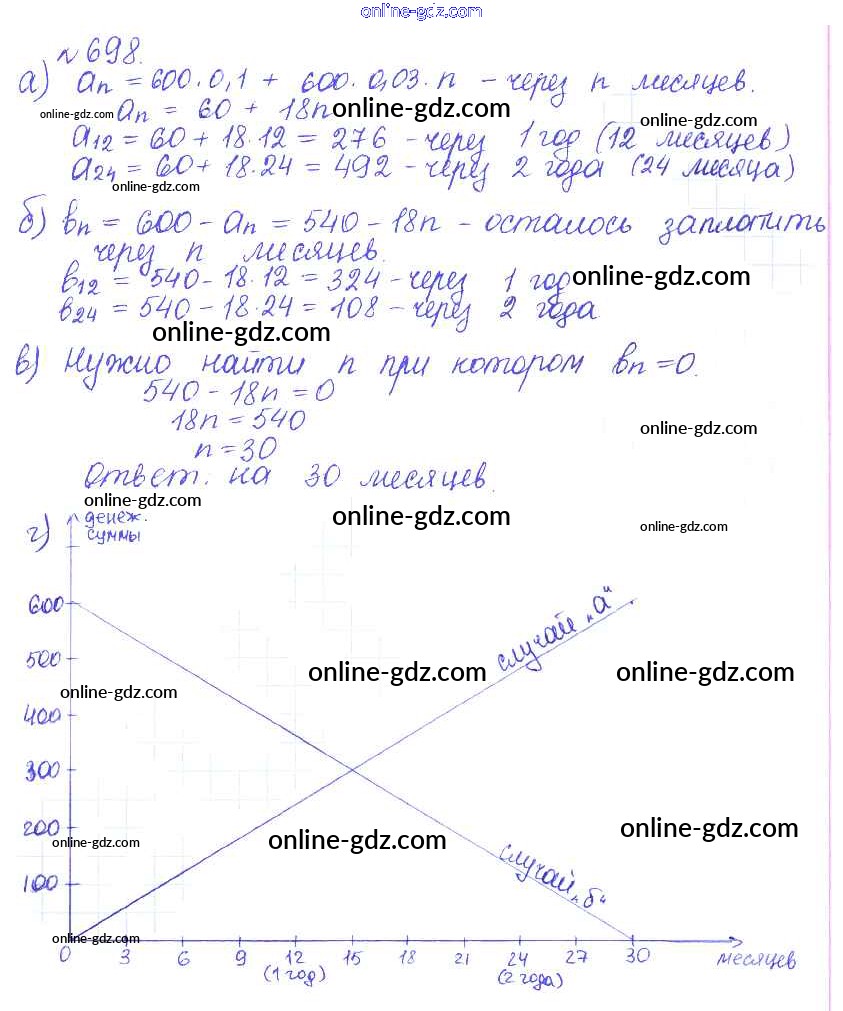 online-gdz.com
№698.
а) aₙ = 600·0,1 + 600·0,03·n – через n месяцев.
online-gdz.com aₙ = 60 + 18n online-gdz.com online-gdz.com
a₁₂ = 60 + 18·12 = 276 – через 1 год (12 месяцев)
a₂₄ = 60 + 18·24 = 492 – через 2 года (24 месяца)
online-gdz.com
б) bₙ = 600 – aₙ = 540 – 18n – осталось заплатить
через n месяцев.
b₁₂ = 540 – 18·12 = 324 – через 1 год online-gdz.com
b₂₄ = 540 – 18·24 = 108 – через 2 года
online-gdz.com
в) Нужно найти n при котором bₙ = 0.
540 – 18n = 0
18n = 540
online-gdz.com
n = 30
Ответ: на 30 месяцев.
online-gdz.com online-gdz.com online-gdz.com
г) денеж.
суммы
600 случай „а“
500 online-gdz.com online-gdz.com
online-gdz.com
400
300
200 online-gdz.com
online-gdz.com online-gdz.com
100 случай „б“
online-gdz.com
0 3 6 9 12 15 18 21 24 27 30 месяцев
(1 год) (2 года)